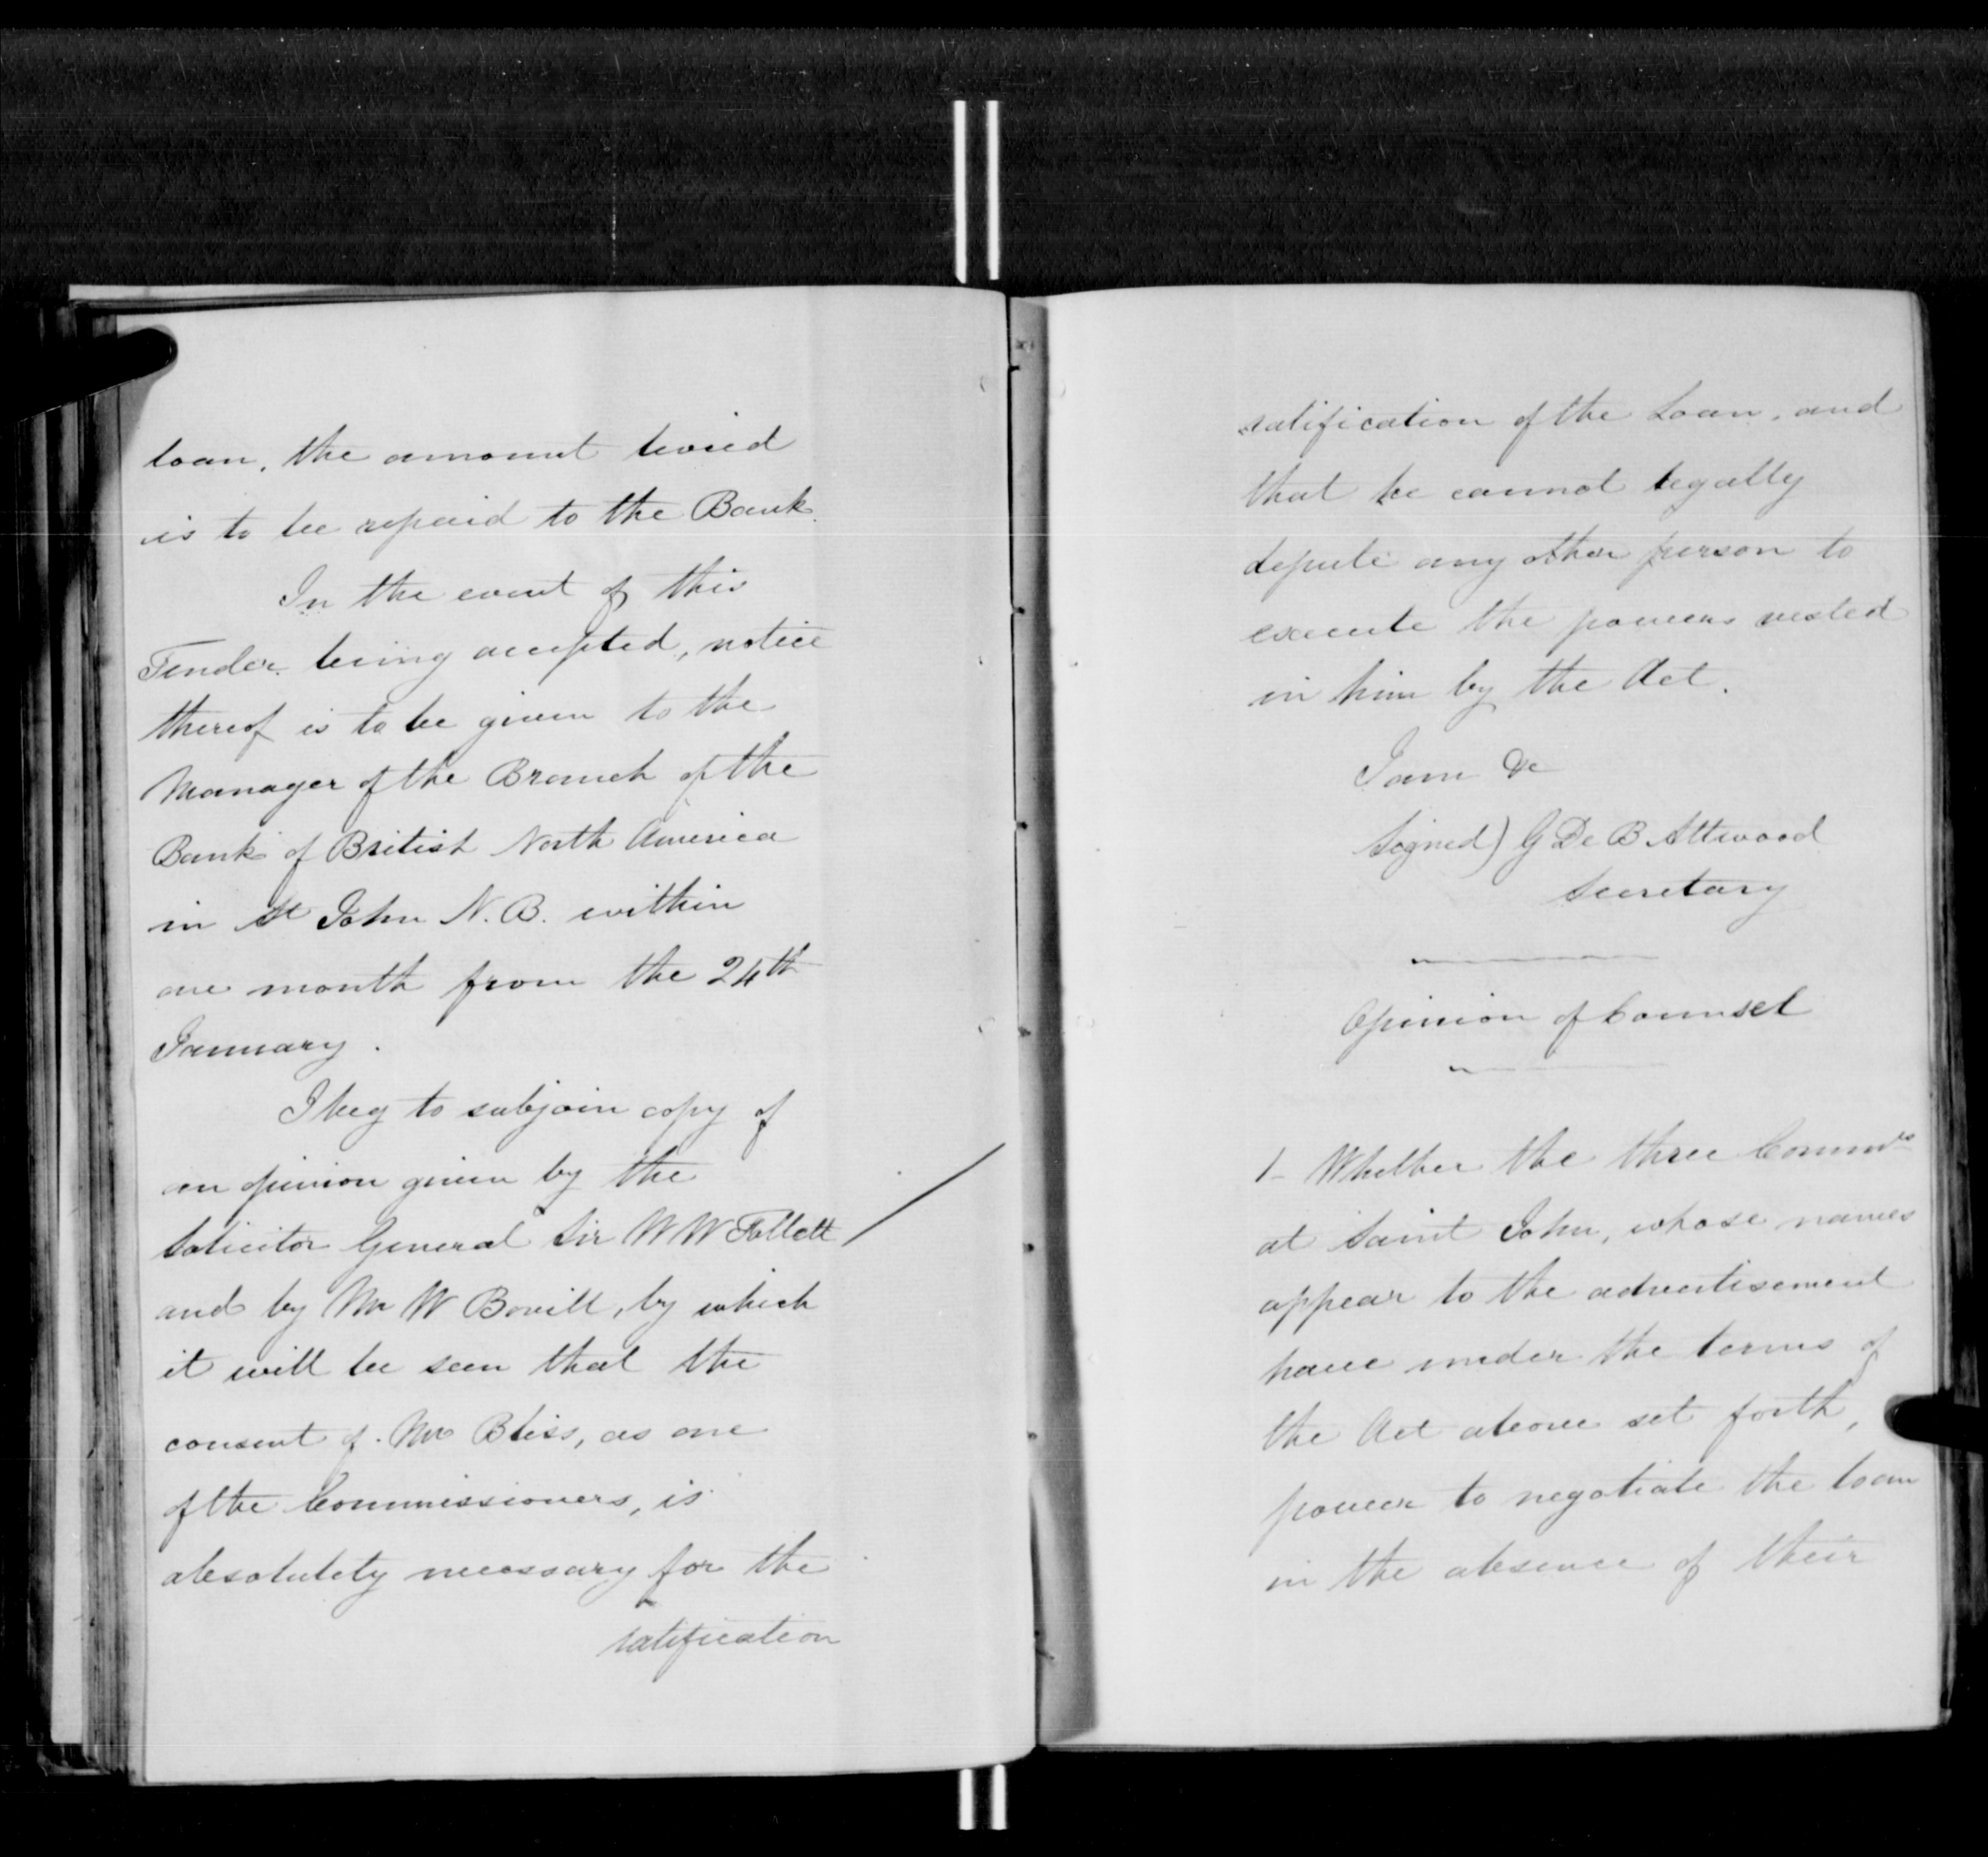 loan, the amount
is to be repaid to the Bank.
In the event of this
Tender being accepted, notice
thereof is to be given to the
Manager of the Branch of the
Bank of British North America
in St John N.B. within
one month from the 24th
January.
I beg to subjoin copy of
an opinion given by the
Solicitor General Sir W W Follett
and by Mr W Bovill, by which
it will be seen that the
consent of Mr Bliss, as one
of the Commissioners, is
absolutely necessary for the
ratification
ratification of the Loan, and
that he cannot legally
depute any other person to
execute the powers vested
in him by the Act.
I am &c
Signed) G De B Attwood
Secretary
Opinion of Counsel
1- Whether the three Commrs
at Saint John, whose names
appear to the advertisement
have under the terms of
the Act above set forth,
power to negotiate the loan
in the absence of their